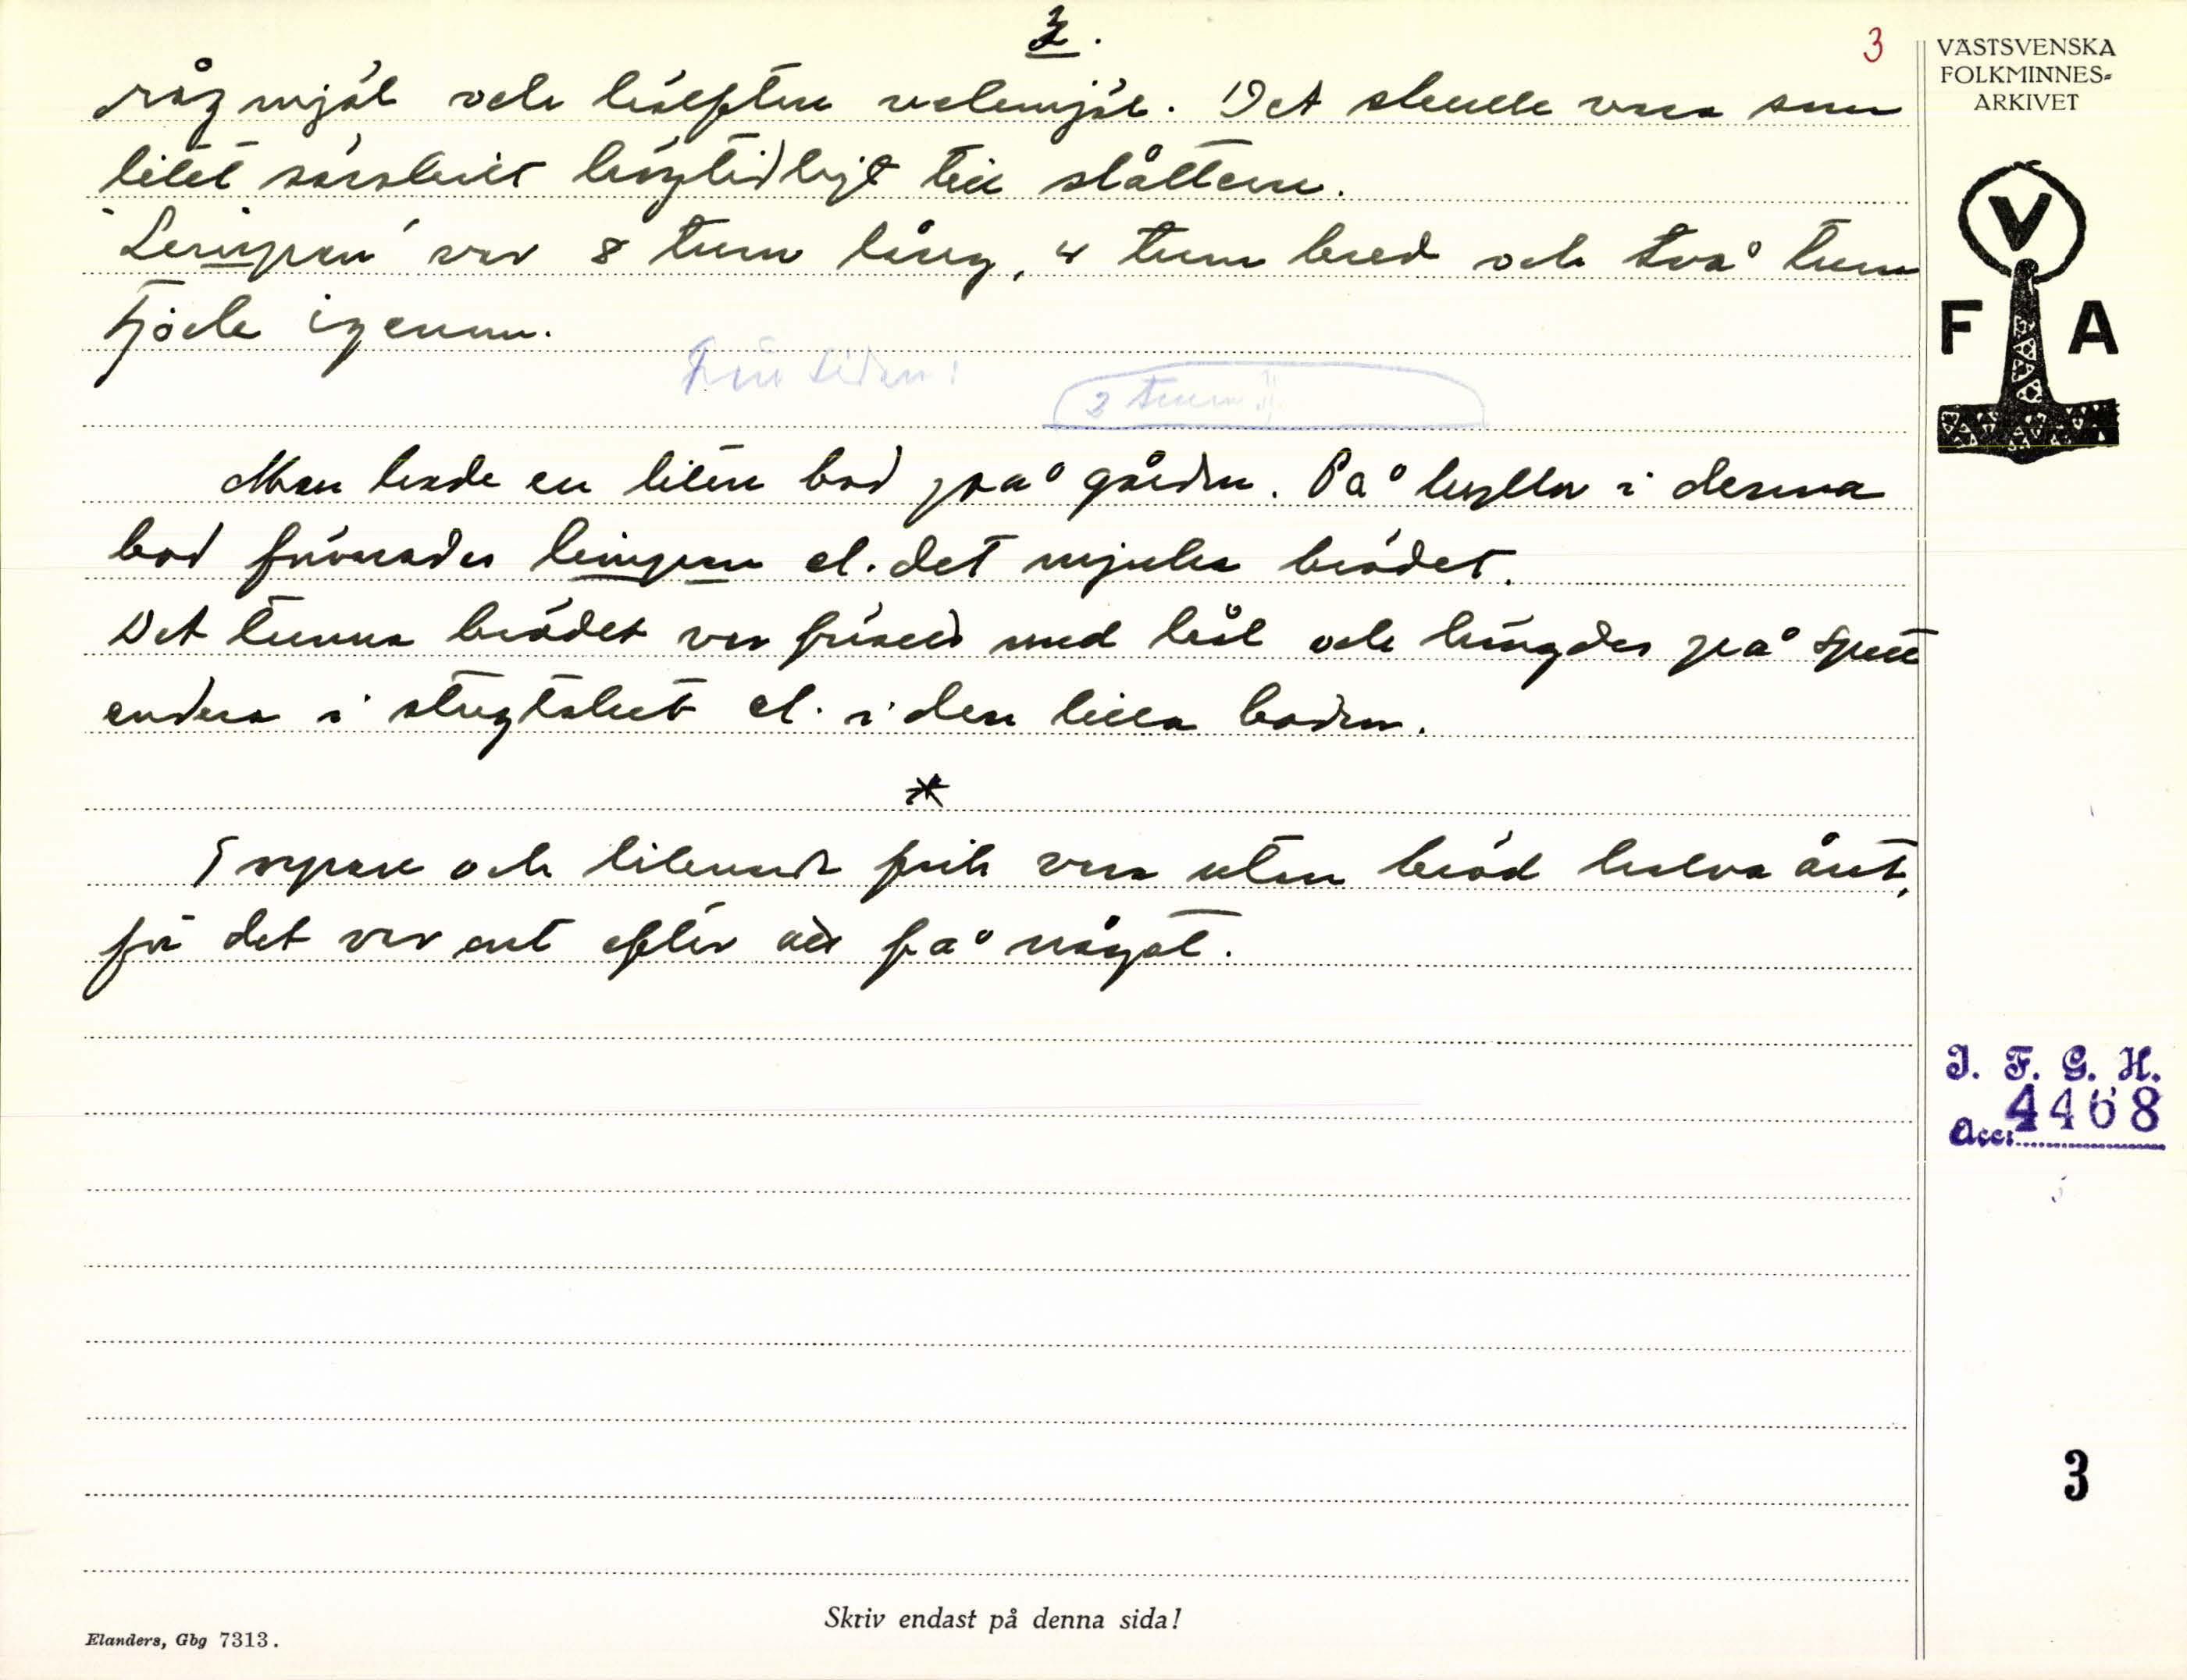 3.
3
VÄSTSVENSKA
FOLKMINNES-
ARKIVET
rågmjöl och hälften vetemjöl. Det skulle vara som
litet särskilt högtidligt till slåttern.
tum lång, 4 tum bred och två tum
tjock igenom.
Från sidan:
2 tum
V
F A
Man hade en liten bod på gården. På hyllor i denna
bod förvarades limpan el. det mjuka brödet.
Det tunna brödet var försett med hål och hängdes på spett
endera i stugtaket el. i den lilla boden.
*
Torpare och liknande fick vara utan bröd halva året,
för det var ont efter att få något.
I. F. G. H.
Acc. 4468
3
Skriv endast på denna sida!
Elanders, Gbg 7313.